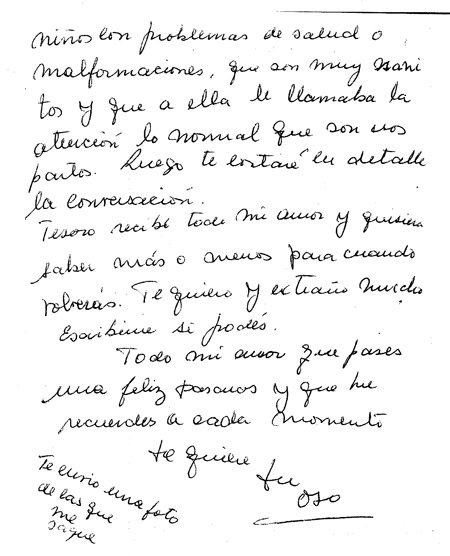 niños con problemas de salud o
malformaciones, que son muy sani
tos y que a ella le llamaba la
atención lo normal que son los
partos. Luego te contaré en detalle
la conversación.
Tesoro recibí todo mi amor y quisiera
saber más o menos para cuando
volverás. Te quiero y extraño mucho
Escribime si podés.
Todo mi amor que pases
una feliz pascuas y que me
recuerdes a cada momento
te quiere tu
oso
Te envio una foto
de las que
me
saque